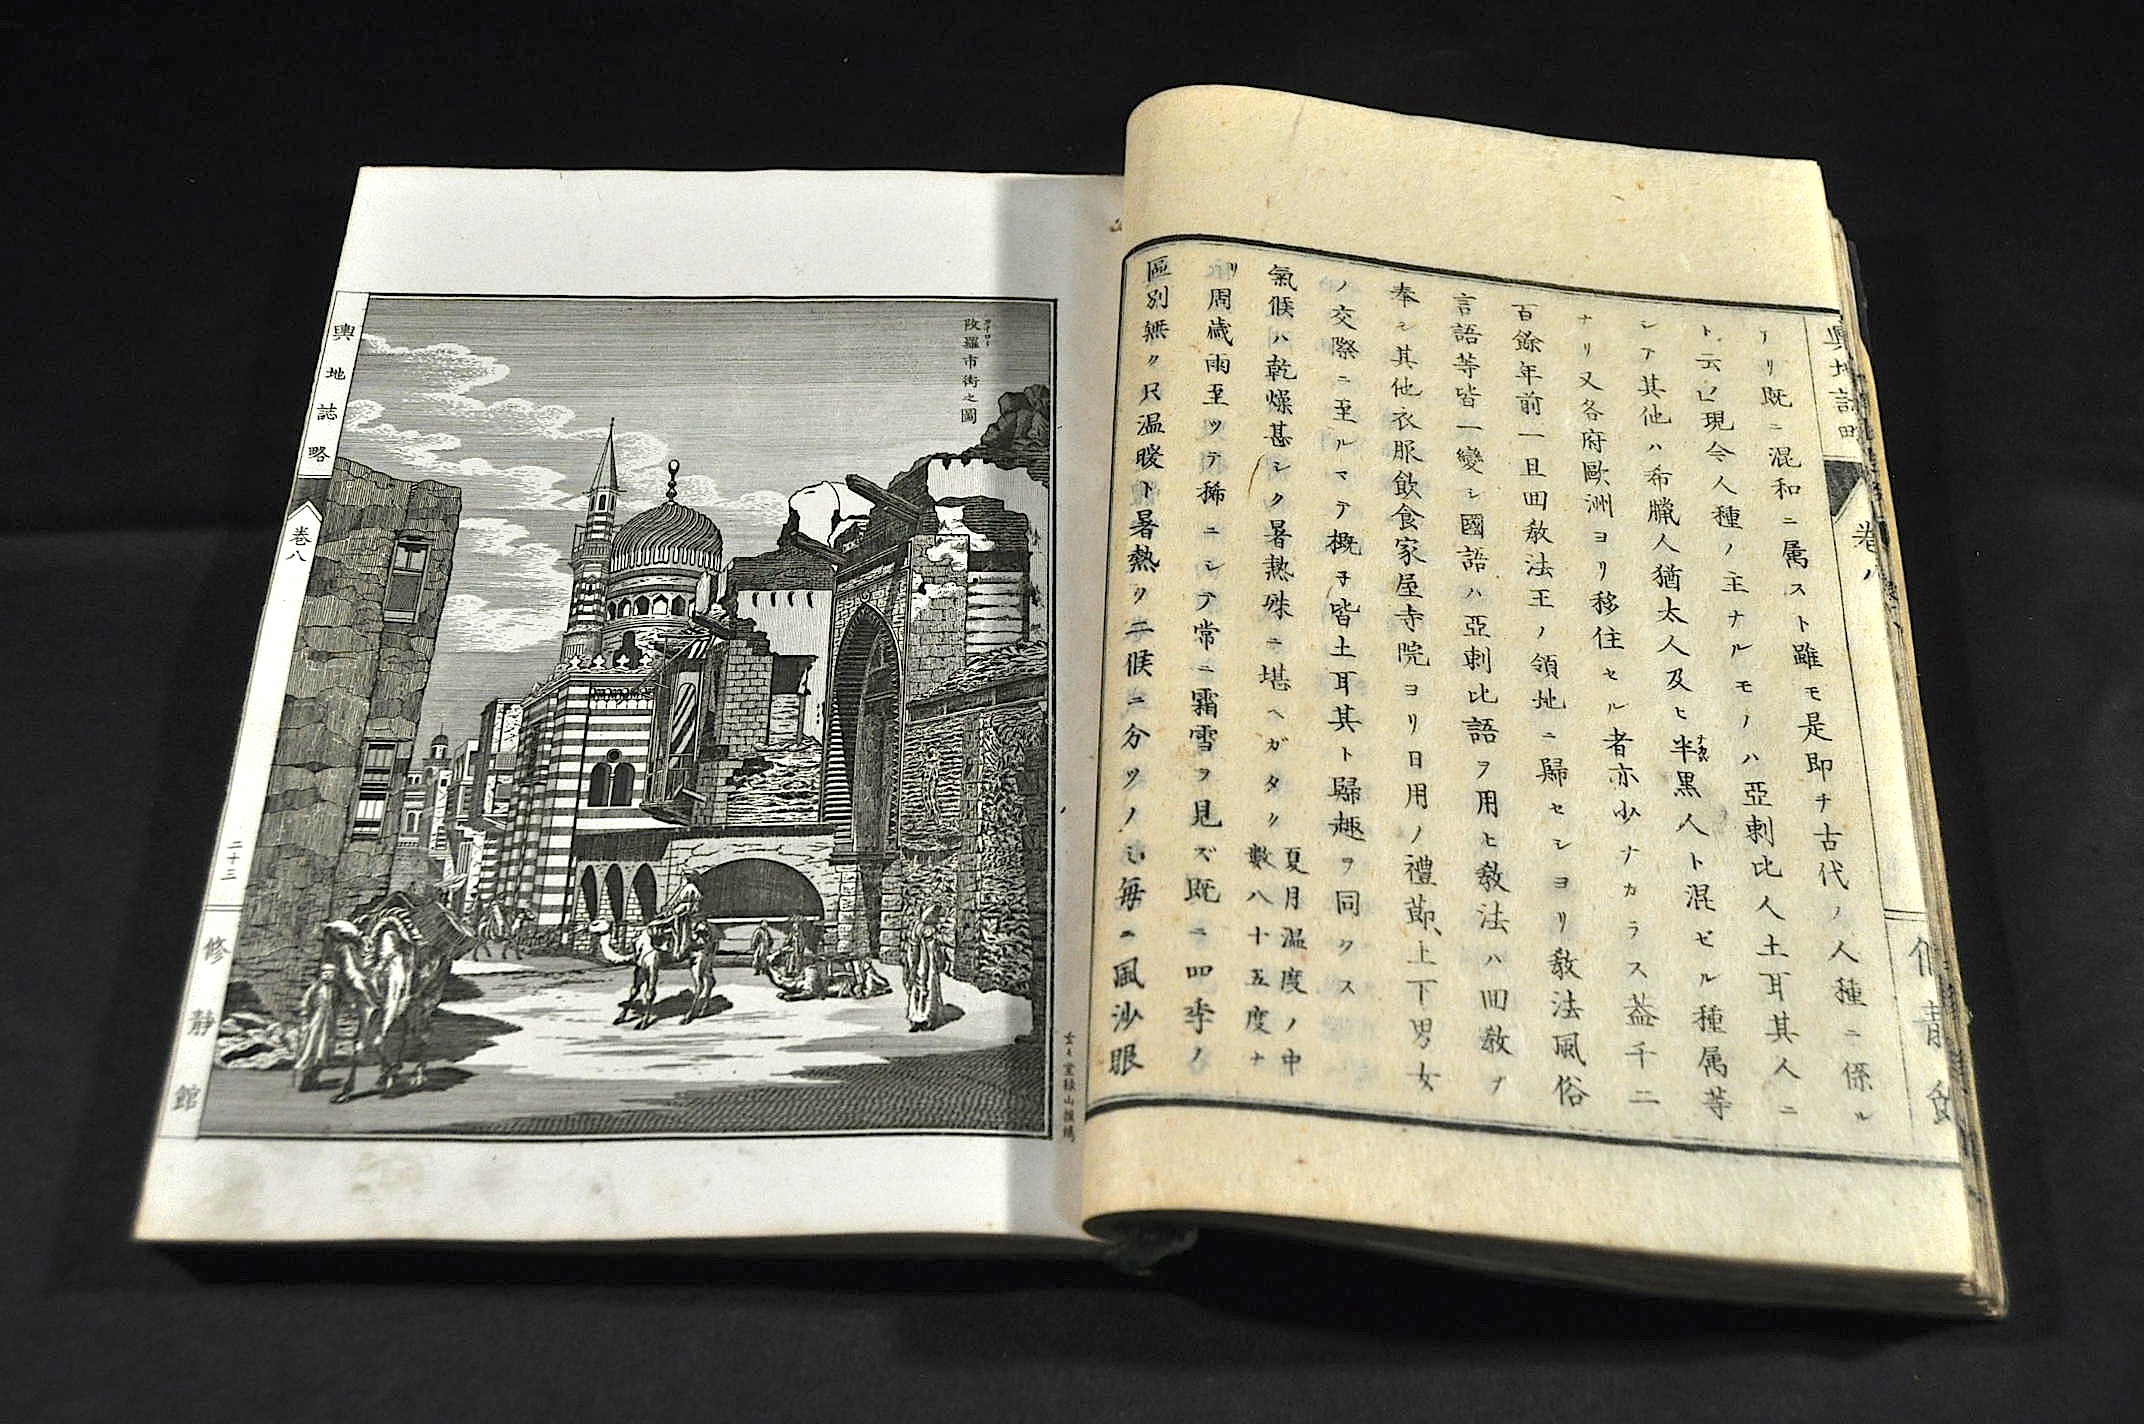 アリ既ニ混和ニ属スト雖モ是即チ古代ノ人種ニ係ル
ト云ヒ現今人種ノ主ナルモノハ亞剌比人土耳其人ニ
シテ其他ハ希臘人猶太人及ヒ半黒人ト混ゼル種属等
ナリ又各府歐洲ヨリ移住セル者亦少ナカラス蓋千二
百餘年前一旦回敎法王ノ領地ニ歸セシヨリ敎法風俗
言語等皆一變シ國語ハ亞剌比語ヲ用ヒ敎法ハ回敎ヲ
奉シ其他衣服飲食家屋寺院ヨリ日用ノ禮節上下男女
ノ交際ニ至ルマテ概子皆土耳其ト歸趣ヲ同クス
氣候ハ乾燥甚シク暑熱殊ニ堪ヘガタク
夏月温度ノ中
數八十五度ナ
リ
周歳雨至ツテ稀ニシテ常ニ霜雪ヲ見ズ既ニ四季ノ
區別無ク只温暖ト暑熱ク二候ニ分ツノミ毎ニ風沙眼
巻八
カイロー
攺羅市街之圖
輿地誌略
巻八
二十三
修靜館